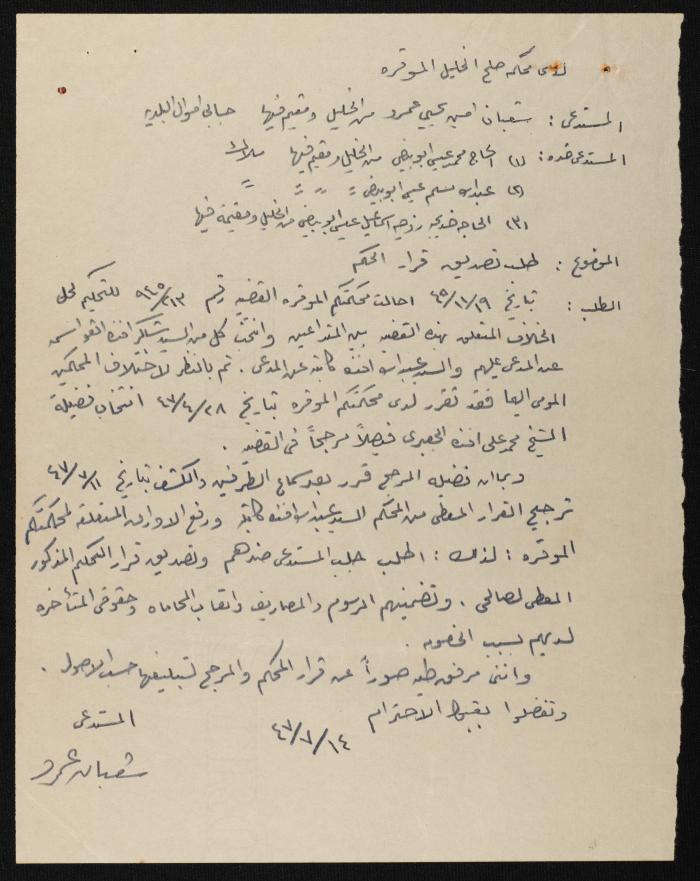 لدى محكمة صلح الخليل الموقره
المستدعى : شعبان امين يحيى عمرو من الخليل ومقيم فيها جابي اموال البلديه
المستدعى ضده : (١) الحاج محمد عيسى ابو بيض من الخليل ومقيم فيها ملاك
(٢) عبد الله مسلم عيسى ابو بيض = = = =
(٣) الحاجه خديجه زوجة اسماعيل عيسى ابو بيض من الخليل ومقيمة فيها
الموضوع : طلب تصديق قرار الحكم
الطلب : بتاريخ ٤٥/١١/١٩ احالت محكمتكم الموقره القضيه رقم للتحكيم لحل
الخلاف المتعلق بهذه القضيه بين المتداعين وانتخب كل من السيد شاكر افندي القواسمه
عن المدعى عليهم والسيد عبد الله افندي كاتبه عن المدعى . ثم بالنظر لاختلاف المحكمين
المومى اليهما فقد تقرر لدى محكمتكم الموقره بتاريخ ٤٧/٤/٢٨ انتخاب فضيلة
الشيخ محمد علي افندي الجعبري فيصلاً مرجحاً في القضيه .
وبما ان فضيلة المرجح قرر بعد سماع الطرفين والكشف بتاريخ ٤٧/٧/١١
ترجيح القرار المعطى من المحكم السيد عبد الله افندي كاتبه ورفع الاوراق المتعلقة لمحكمتكم
الموقره : لذلك : اطلب جلب المستدعى ضدهم وتصديق قرار التحكيم المذكور
المعطى لصالحي . وتضمينهم الرسوم والمصاريف واتعاب المحاماه وحقوقي المتأخره
لديهم بسبب الخصومه .
وانني مرفق طيه صوراً عن قرار المحكم والمرجح لتبليغها حسب الاصول .
وتفضلوا بقبول الاحترام
٤٧/٧/١٤
المستدعى
شعبان عمرو